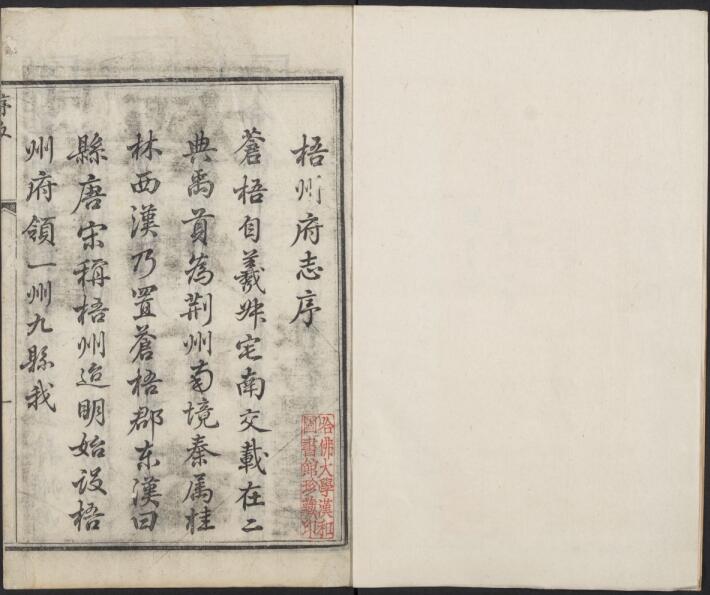 梧州府志序
蒼梧自羲叔宅南交載在二
典禹貢為荆州南境秦属桂
林西漢乃置蒼梧郡东漢曰
縣唐宋稱梧州迨明始设梧
州府領一州九縣我
哈佛大學漢和
圖書館珍藏印